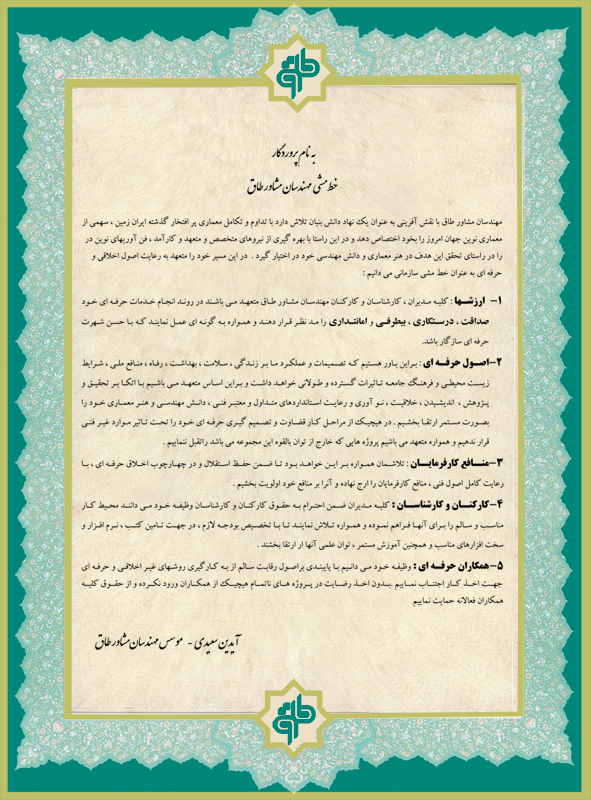 طاق
به نام پروردگار
خط مشی مهندسان مشاور طاق
مهندسان مشاور طاق با نقش آفرینی به عنوان یک نهاد دانش بنیان تلاش دارد با تداوم و تکامل معماری پر افتخار گذشته ایران زمین ، سهمی از
معماری نوین جهان امروز را بخود اختصاص دهد و در این راستا با بهره گیری از نیروهای متخصص و متعهد و کارآمد ، فن آوریهای نوین در
را در راستای تحقق این هدف در هنر معماری و دانش مهندسی خود در اختیار گیرد . در این مسیر خود را متعهد به رعایت اصول اخلاقی و
حرفه ای به عنوان خط مشی سازمانی می دانیم :
۱- ارزشها : کلیه مدیران ، کارشناسان و کارکنان مهندسان مشاور طاق متعهد می باشند در روند انجام خدمات حرفه ای خود
صداقت ، درستکاری ، بیطرفی و امانتداری را مد نظر قرار دهند و همواره به گونه ای عمل نمایند که با حسن شهرت
حرفه ای سازگار باشد.
۲-اصول حرفه ای : براین باور هستیم که تصمیمات و عملکرد ما بر زندگی ، سلامت ، بهداشت ، رفاه ، منافع ملی ، شرایط
زیست محیطی و فرهنگ جامعه تاثیرات گسترده و طولانی خواهد داشت و براین اساس متعهد می باشیم با اتکا بر تحقیق و
پژوهش ، اندیشیدن ، خلاقیت ، نو آوری و رعایت استانداردهای متداول و معتبر فنی ، دانش مهندسی و هنر معماری خود را
بصورت مستمر ارتقا بخشیم . در هیچیک از مراحل کار قضاوت و تصمیم گیری حرفه ای خود را تحت تاثیر موارد غیر فنی
قرار ندهیم و همواره متعهد می باشیم پروژه هایی که خارج از توان بالقوه این مجموعه می باشد راقبل ننماییم .
۳-منافع کارفرمایان : تلاشمان همواره بر این خواهد بود تا ضمن حفظ استقلال و در چهارچوب اخلاق حرفه ای ، با
رعایت کامل اصول فنی ، منافع کارفرمایان را ارج نهاده و آنرا بر منافع خود اولویت بخشیم .
۴-کارکنان و کارشناسان : کلیه مدیران ضمن احترام به حقوق کارکنان و کارشناسان وظیفه خود می دانند محیط کار
مناسب و سالم را برای آنها فراهم نموده و همواره تلاش نمایند تا با تخصیص بودجه لازم ، در جهت تامین کتب ، نرم افزار و
سخت افزارهای مناسب و همچنین آموزش مستمر ، توان علمی آنها ار ارتقا بخشند .
۵-همکاران حرفه ای : وظیفه خود می دانیم با پایبندی براصول رقابت سالم از به کارگیری روشهای غیر اخلاقی و حرفه ای
جهت اخذ کار اجتناب نماییم .بدون اخذ رضایت در پروژه های ناتمام هیچیک از همکاران ورود نکرده و از حقوق کلیه
همکاران فعالانه حمایت نماییم
آیدین سعیدی - موسس مهندسان مشاور طاق
طاق